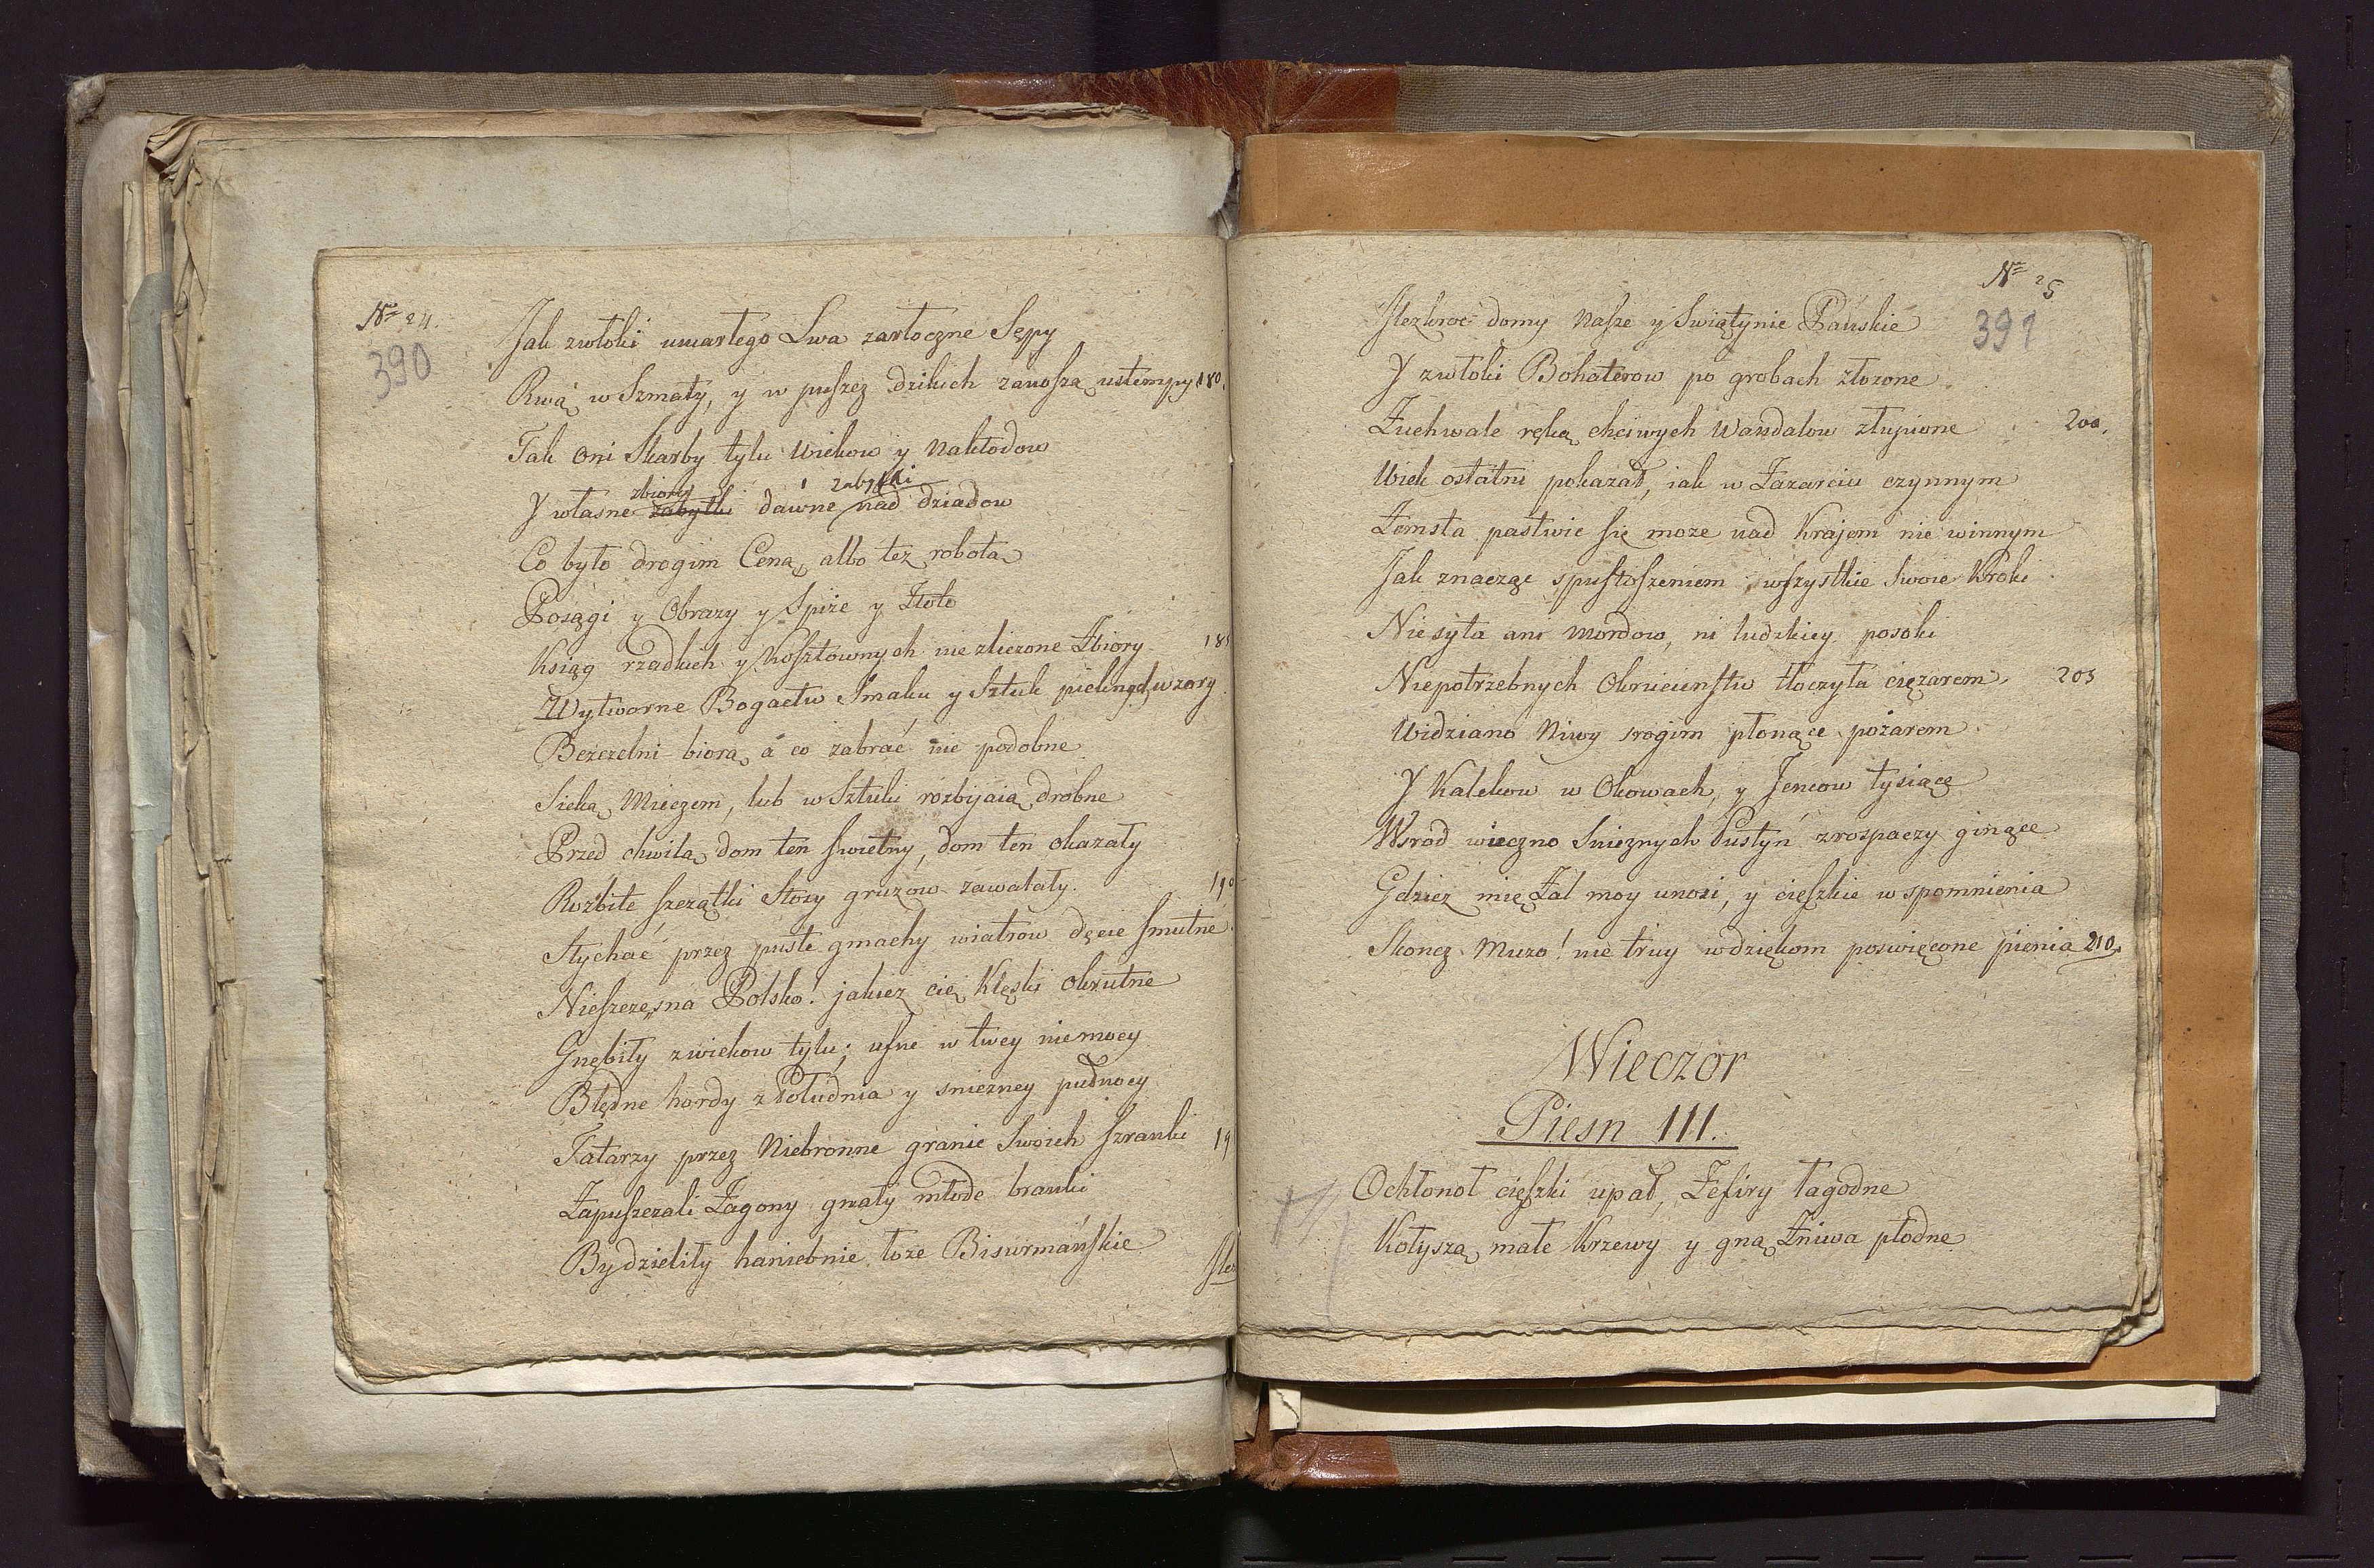 No 24.
390
Jak zwłoki umarłego Lwa zarłoczne Sępy
Rwą w Szmaty, y w puszcz dzikich zanoszą ustempy 180.
Tak oni Skarby tylu Wiekow y Nakłodow
zbiory zabytki
Y własne zabytki dawne nad dziadow
Co było drogim Ceną, albo tez robotą
Posągi y Obrazy y Spiże y Złoto
Ksiąg rzadkich y Kosztownych nie zliczone Zbiory 185
Wytworne Bogactw Smaku y Sztuk pieknych wzory
Bezczelni biorą, a co zabrać nie podobne
Sieką Mieczem, lub w Sztuki rozbijaią drobne
Przed chwilą dom ten swietny, dom ten okazały
Rozbite szczątki Stosy gruzow zawalały. 190
Słychać przez puste gmachy wiatrow dęcie smutne
Nieszczęsna Polsko! jakiez cię Klęski Okrutne
Gnębiły z wiekow tylu; ufne w twey niemocy
Błędne hordy z Południa y snieżney pułnocy
Tatarzy przez Niebronne granic Swoich szranki 19
Zapuszczali Zagony gnały młode branki
By dzieliły haniebnie łoze Bisurmańskie
Ilez
No 25
391
Ilezkroć domy Nasze y Swiątynie Pańskie
Y zwłoki Bohaterow po grobach złozone
Zuchwale ręką chciwych Wandalow złupione 200.
Wiek ostatni pokazał, iak w Zazarciu czynnym
Zemsta pastwic się moze nad Krajem nie winnym
Jak znacząc spustoszeniem wszystkie Swoie Kroki
Niesyta ani Mordow, ni ludzkiey posoki
Niepotrzebnych Okrucienstw tłoczyła ciężarem 205
Widziano Niwy srogim płonące pożarem
Y Kalekow w Okowach, y Jencow tysiące
Wsrod wieczno Snieznych Pustyń z rozpaczy ginące
Gdziez mię Zal moy unosi, y cięszkie wspomnienia
Skoncz Muzo! nie truy wdziękom poswięcone pienia 210.
Wieczor
Piesn III.
Ochłonoł cięszki upał, Zefiry łagodne
Kołyszą małe Krzewy y gną Żniwa płodne